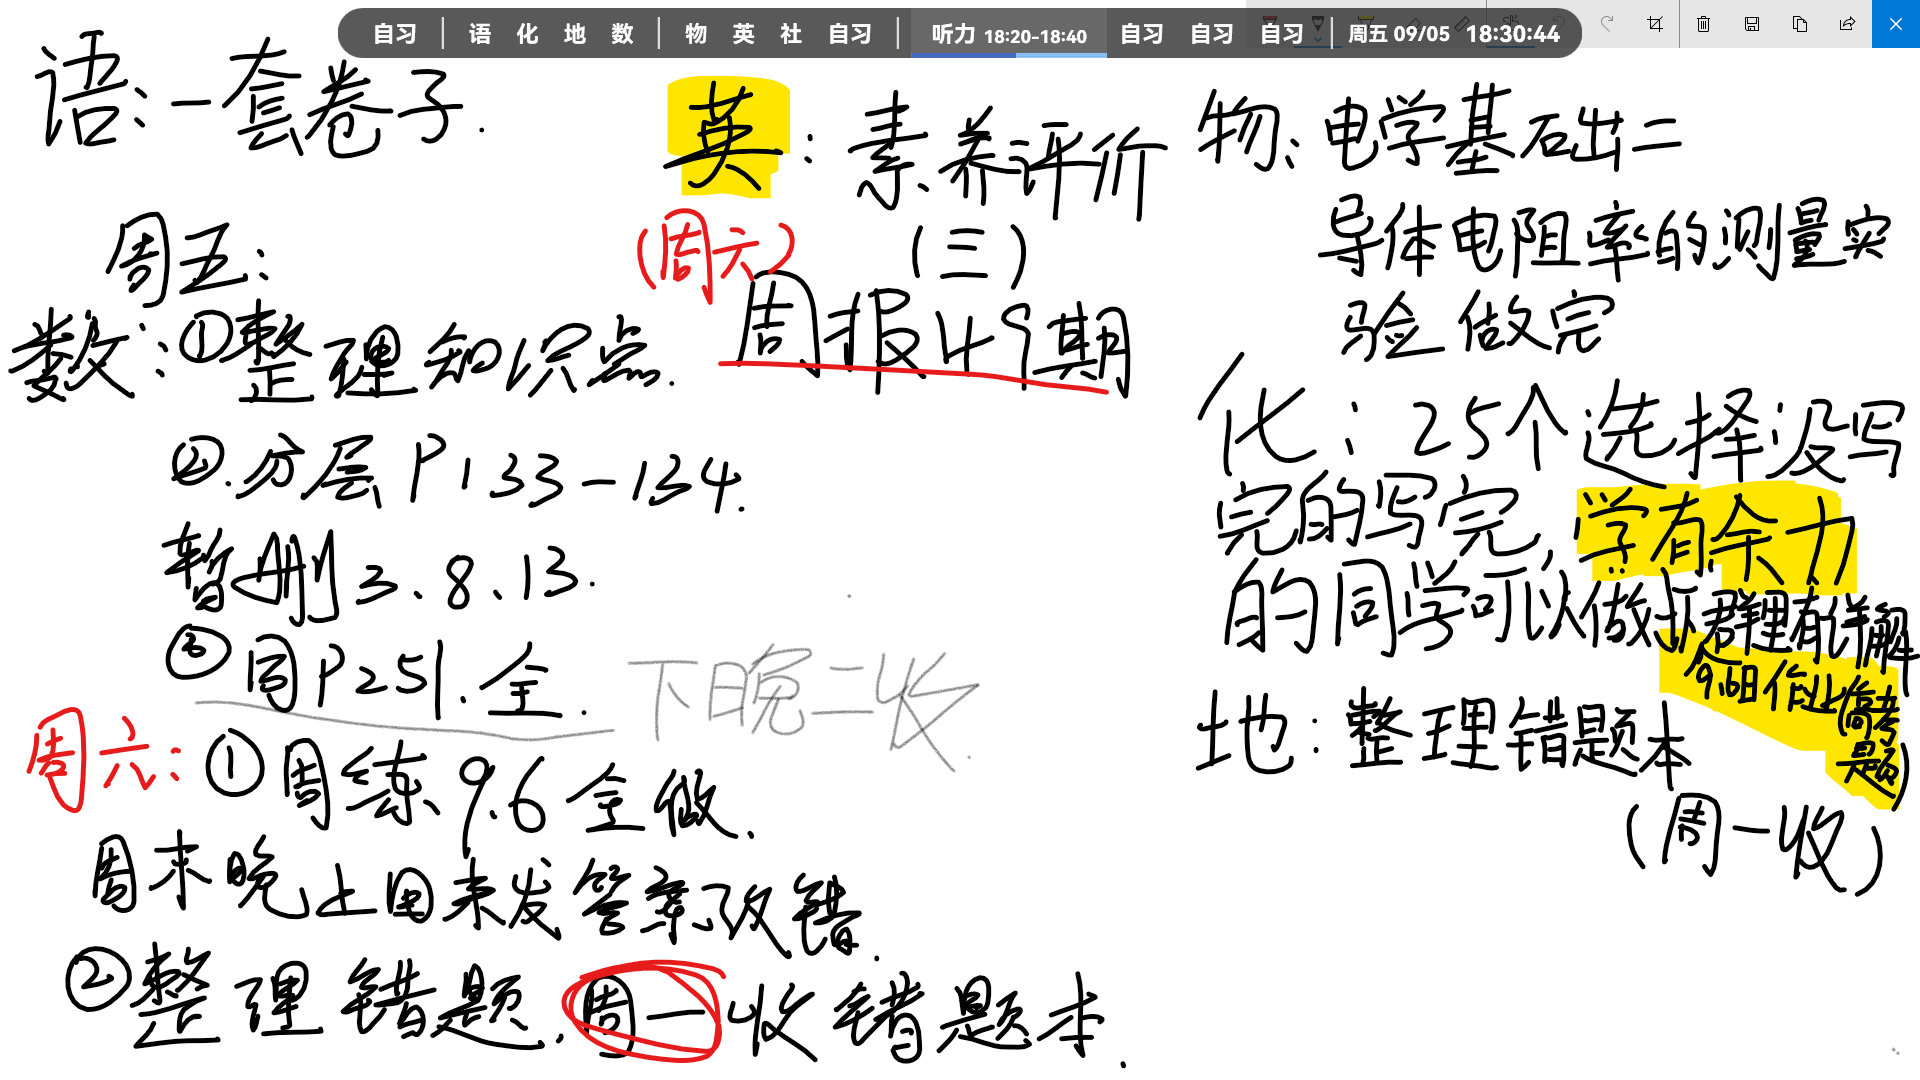 自习 | 语 化 地 数 | 物 英 社 自习 | 听力 18:20-18:40 自习 自习 自习 | 周五 09/05 18:30:44
语:一套卷子.
周五:
数:①整理知识点.
②.分层P133-134.
暂删3、8、13.
③同P251.全.
下晚二收.
周六:①周练9.6全做.
周末晚上回来发答案改错.
②整理错题,周一收错题本.
英:素养评价
(三)
(周六)
周报49期
物:电学基础二
导体电阻率的测量实
验做完
化:25个选择没写
完的写完,学有余力
的同学可以做
群里有详解
9.6日作业
高考
题)
地:整理错题本
(周一收)